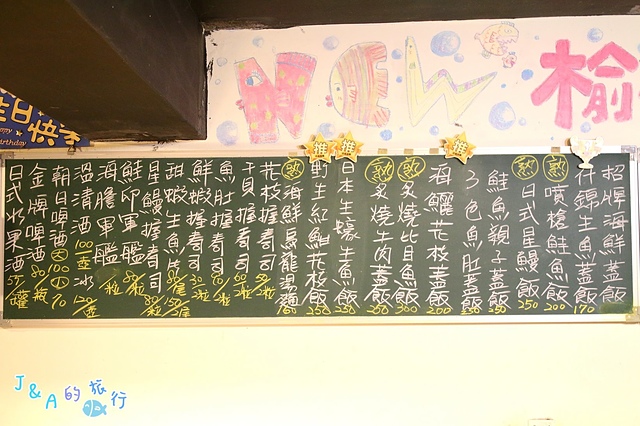 NEW 榆
生日快
Birthday
招牌海鮮蓋飯
什錦生魚蓋飯 170
熟 噴槍鮭魚飯 200
熟 日式星鰻飯 250
鮭魚親子蓋飯 250
3色魚肚蓋飯 250
推 海鱺花枝蓋飯 200
熟 炙燒比目魚飯 300
熟 炙燒牛肉蓋飯 250
推 日本生蠔生魚飯 250
推 野生紅魽花枝飯 250
熟 海鮮烏龍湯麵 180
花枝握壽司
干貝握壽司
魚肚握壽司
鮮蝦握壽司
甜蝦生魚片
星鰻握壽司
鮭卵軍艦
海膽軍艦
溫清酒 100
朝日啤酒
金牌啤酒 80 瓶
日式水果酒 罐
J&A的旅行